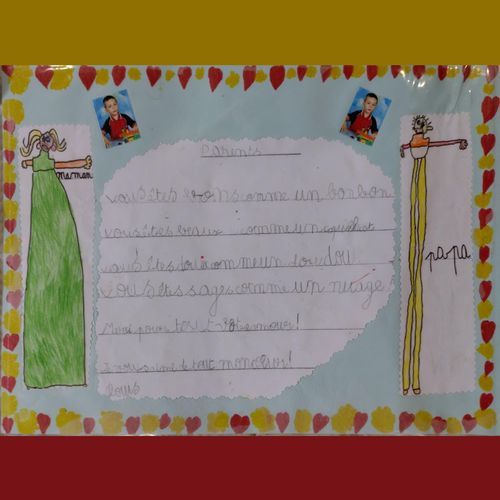 Parents
maman
vous êtes bons comme un bonbon
vous êtes beaux comme un
vous êtes doux comme un doudou
vous êtes sages comme un nuage
papa
Merci pour tout votre amour!
Je vous aime de tout mon cœur!